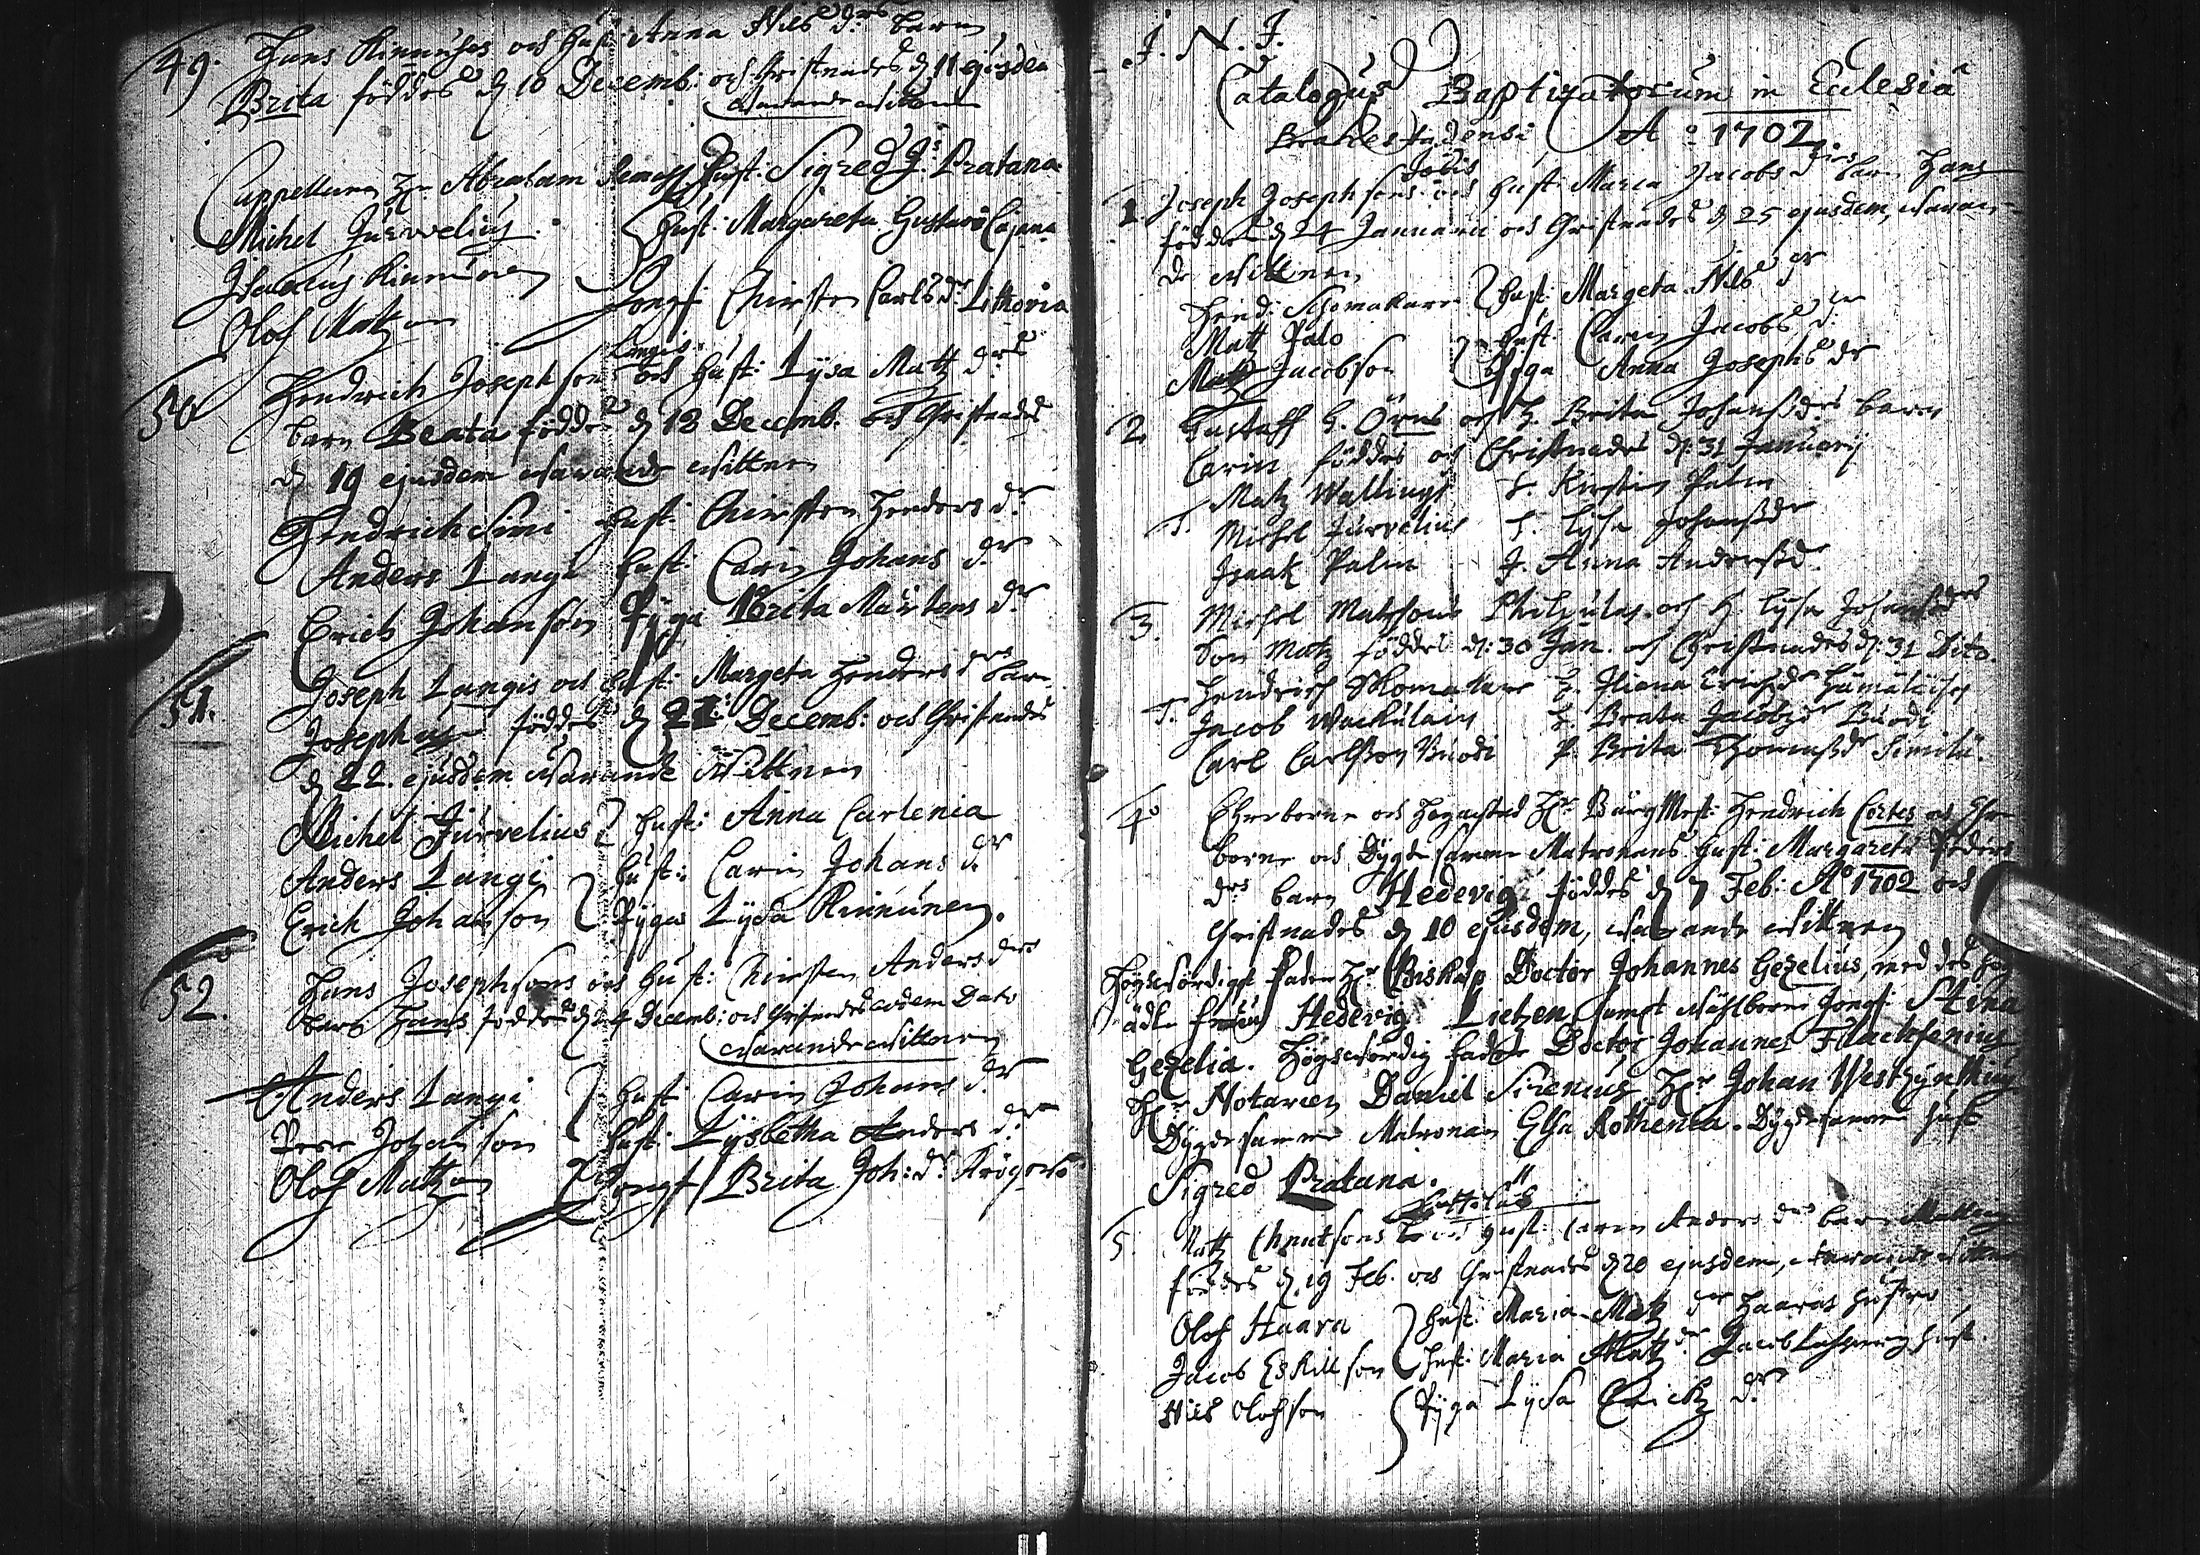 49. Hans Kinnuses och hust: Anna Nils drs barn
Brita föddes d 10 Decemb: och Christnades d 11 ejusdem
warande wittnen
Cappellanen Hr Abraham hust: Sigred Js Pratana
Michel Jurvelius hust: Margareta Gustavi Cajana
Isacus Kinnunen Jongf: Chirsten Carls dr Lithovia
Olof Matzon
50 Hendrich Josephson Langis och hust: Lysa Matz drs
barn Beata föddes d 18 Decemb. och Christnades
d 19 ejusdem warande wittnen
Hendrich Simi hust: Chirsten Henders dr
Anders Langi hust: Carin Johans dr
Erich Johanson Pyga Brita Mårtens dr
51. Joseph Langis och hust: Margeta Henders drs barn
Josephus föddes d 21 Decemb: och Christnades
d 22. ejusdem warande wittnen
Michel Jurvelius hust: Anna Carlenia
Anders Langi hust: Carin Johans dr
Erich Johanson Pyga Lysa Kinnunen.
52. Hans Josephsons och hust: Chirsten Anders drs
barn Hans föddes d Decemb: och Christnades eodem Dato
warande wittnen
Anders Langi hust: Carin Johans dr
Perr Johanson hust: Lysbetha Anders dr
Olof Matzon Jongf Brita Joh: dr Krögers
J. N. J.
Catalogus Baptizatorum in Ecclesia
Brahestadensi Ao 1702.
1. Joseph Josephsons och hust: Maria Jacobs drs barn Hans
föddes d 24 Januarii och Christnades d 25 ejusdem, waran-
de wittnen
Hend: Skomakare hust: Margeta Nils dr
Matz Palo hust: Carin Jacobs dr
Matz Jacobson Pyga Anna Josephs dr
2. Gustaff G. Örns och H. Brita Johansdrs barn
Carin föddes och Christnades d: 31 Januarij
T. Matz Wallings H. Kirstin Palm
Michel Jurvelius H. Lysa Johansdr
Isaak Palm J. Anna Andersdr.
3. Michel Matzsons och H. Lysa Johansdrs
Son Matz föddes d: 30 Jan. och Christnades d: 31 Dito.
T. Hendrich Skomakare H.
Jacob H. Beata Jacobsdr Buodi
Carl Carlsson Buodi P. Brita Thomasdr Similä.
4. Ehreborne och Hr BurgMest: Hendrich Cortes och Ehre
borne och Dygdesamme Matronans hust: Margareta Peders
drs barn Hedevig föddes d 7 Feb: Ao 1702 och
Christnades d 10 ejusdem, warande wittnen
Höghwördigst Fader Hr Biskop Doctor Johannes Gezelius, med dess
ädle Fruu Hedevig Lietzen, sampt wählborne Jongf: Stina
Gezelia. Höghwördig Fader Doctor Johannes Flachsenius
Hr Notarien Daniel Sirenius Hr Johan Westzynthius
Dygdesamme Matronan Elsa Rothenia. Dygdesamme hust
Sigred Pratana.
5. Matz Chnutsons och hust: Carin Anders drs barn
föddes d. 19 Feb. och Christnades d 20 ejusdem, warande wittnen
Olof Haara hust: Maria Matz dr Haaras hustru
Jacob Eskillson hust: Maria Matz dr Jacob hust.
Nils Olofson Pyga Lysa Erichz dr